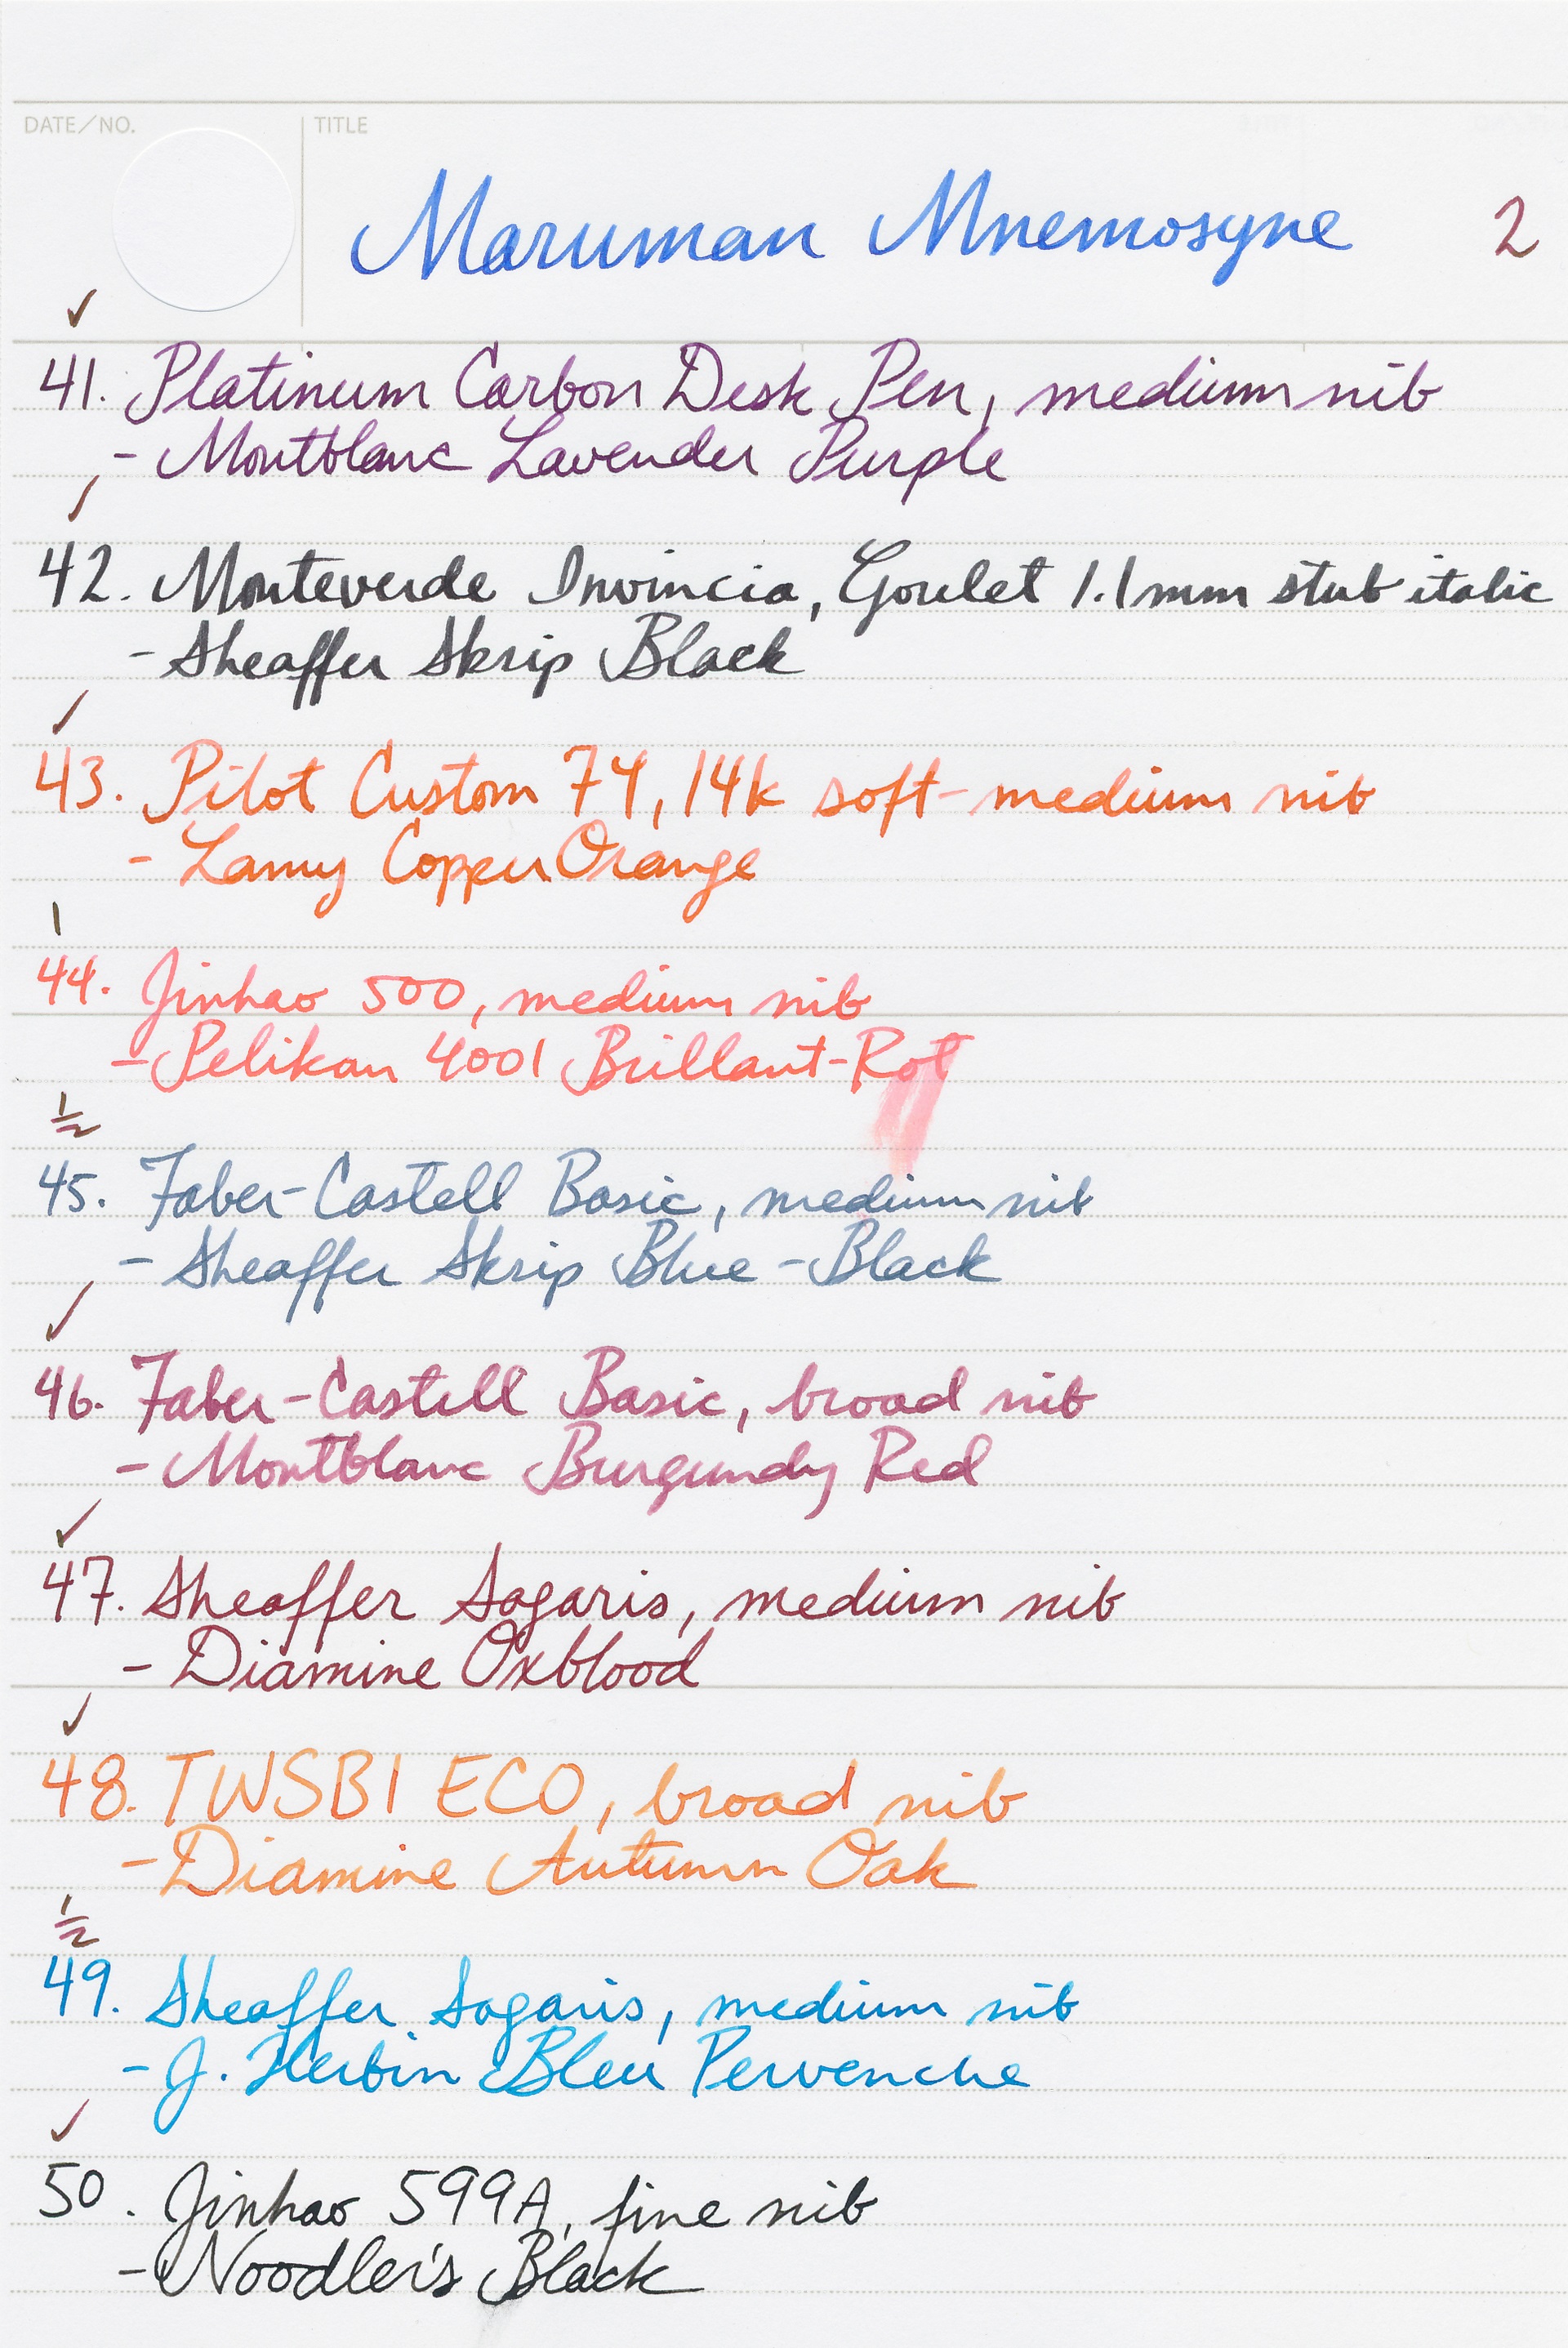 DATE/NO.
TITLE
Maruman Mnemosyne 2
✓
41. Platinum Carbon Desk Pen, medium nib
- Montblanc Lavender Purple
✓
42. Monteverde Invincia, Goulet 1.1mm stub italic
- Sheaffer Skrip Black
✓
43. Pilot Custom 74, 14k soft-medium nib
- Lamy Copper Orange
1
44. Jinhao 500, medium nib
- Pelikan 4001 Brillant-Rot
1/2
45. Faber-Castell Basic, medium nib
- Sheaffer Skrip Blue-Black
✓
46. Faber-Castell Basic, broad nib
- Montblanc Burgundy Red
✓
47. Sheaffer Sagaris, medium nib
- Diamine Oxblood
✓
48. TWSBI ECO, broad nib
- Diamine Autumn Oak
1/2
49. Sheaffer Sagaris, medium nib
- J. Herbin Bleu Pervenche
✓
50. Jinhao 599A, fine nib
- Noodler's Black